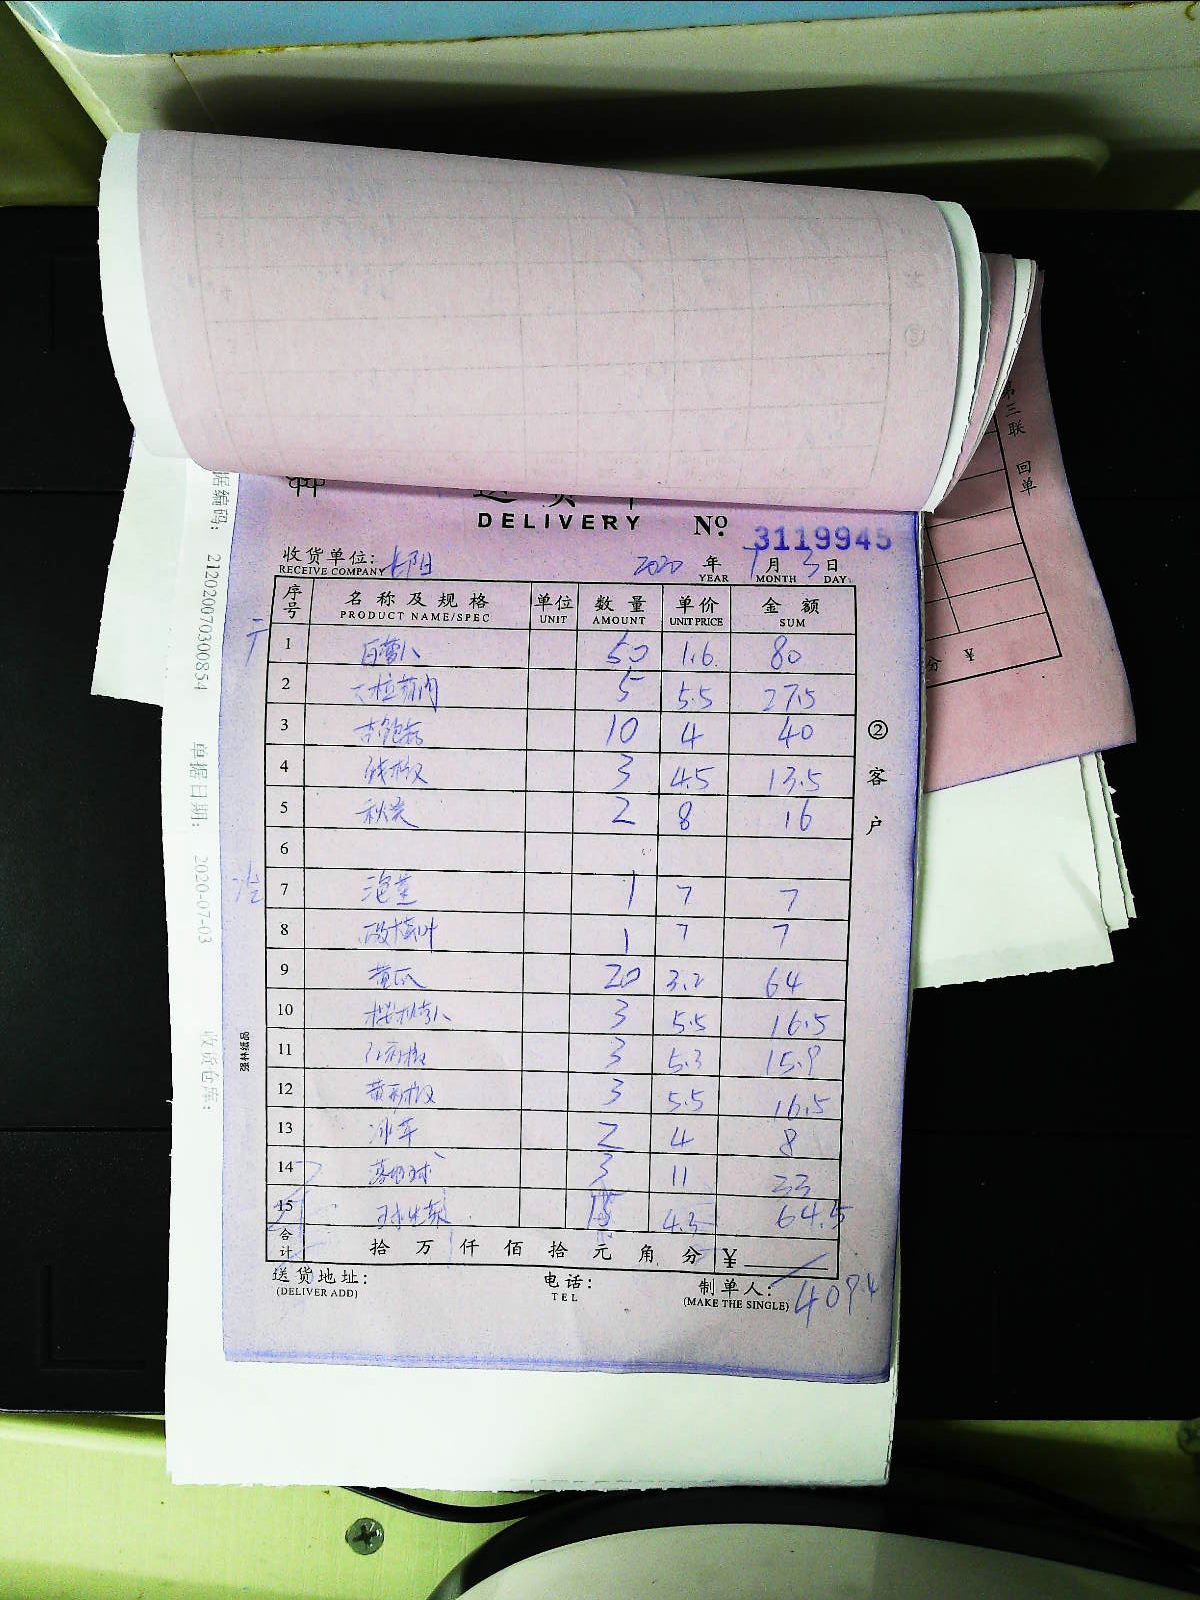 DELIVERY No. 3119945
收货单位: 2020 年 7 月 3 日
RECEIVE COMPANY YEAR MONTH DAY
序号 名称及规格 单位 数量 单价 金额
PRODUCT NAME/SPEC UNIT AMOUNT UNIT PRICE SUM
1 白萝卜 50 1.6 80
2 5 5.5 27.5
3 杏鲍菇 10 4 40
4 线椒 3 4.5 13.5
5 秋葵 2 8 16
6
7 1 7 7
8 1 7 7
9 黄瓜 20 3.2 64
10 3 5.5 16.5
11 3 5.3 15.9
12 黄彩椒 3 5.5 16.5
13 冰草 2 4 8
14 3 11 33
15 15 4.3 64.5
合计 拾 万 仟 佰 拾 元 角 分 ¥
409.4
送货地址: 电话: 制单人:
(DELIVER ADD) TEL (MAKE THE SINGLE)
②客户
强林纸品
据编码: 212020070300854 单据日期: 2020-07-03 收货仓库:
第三联 回单
分 ¥